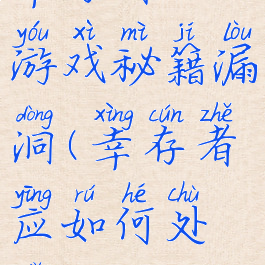 yóu xì mì jí lòu
游戏秘籍漏
dòng xìng cún zhě
洞(幸存者
yīng rú hé chù
应如何处